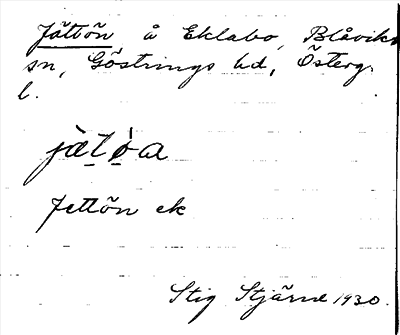 Jättön å Eklabo, Blåviks
sn, Göstrings hd, Österg.
l.
jä̀tø̀a
Jettön ek
Stig Stjärne 1930.